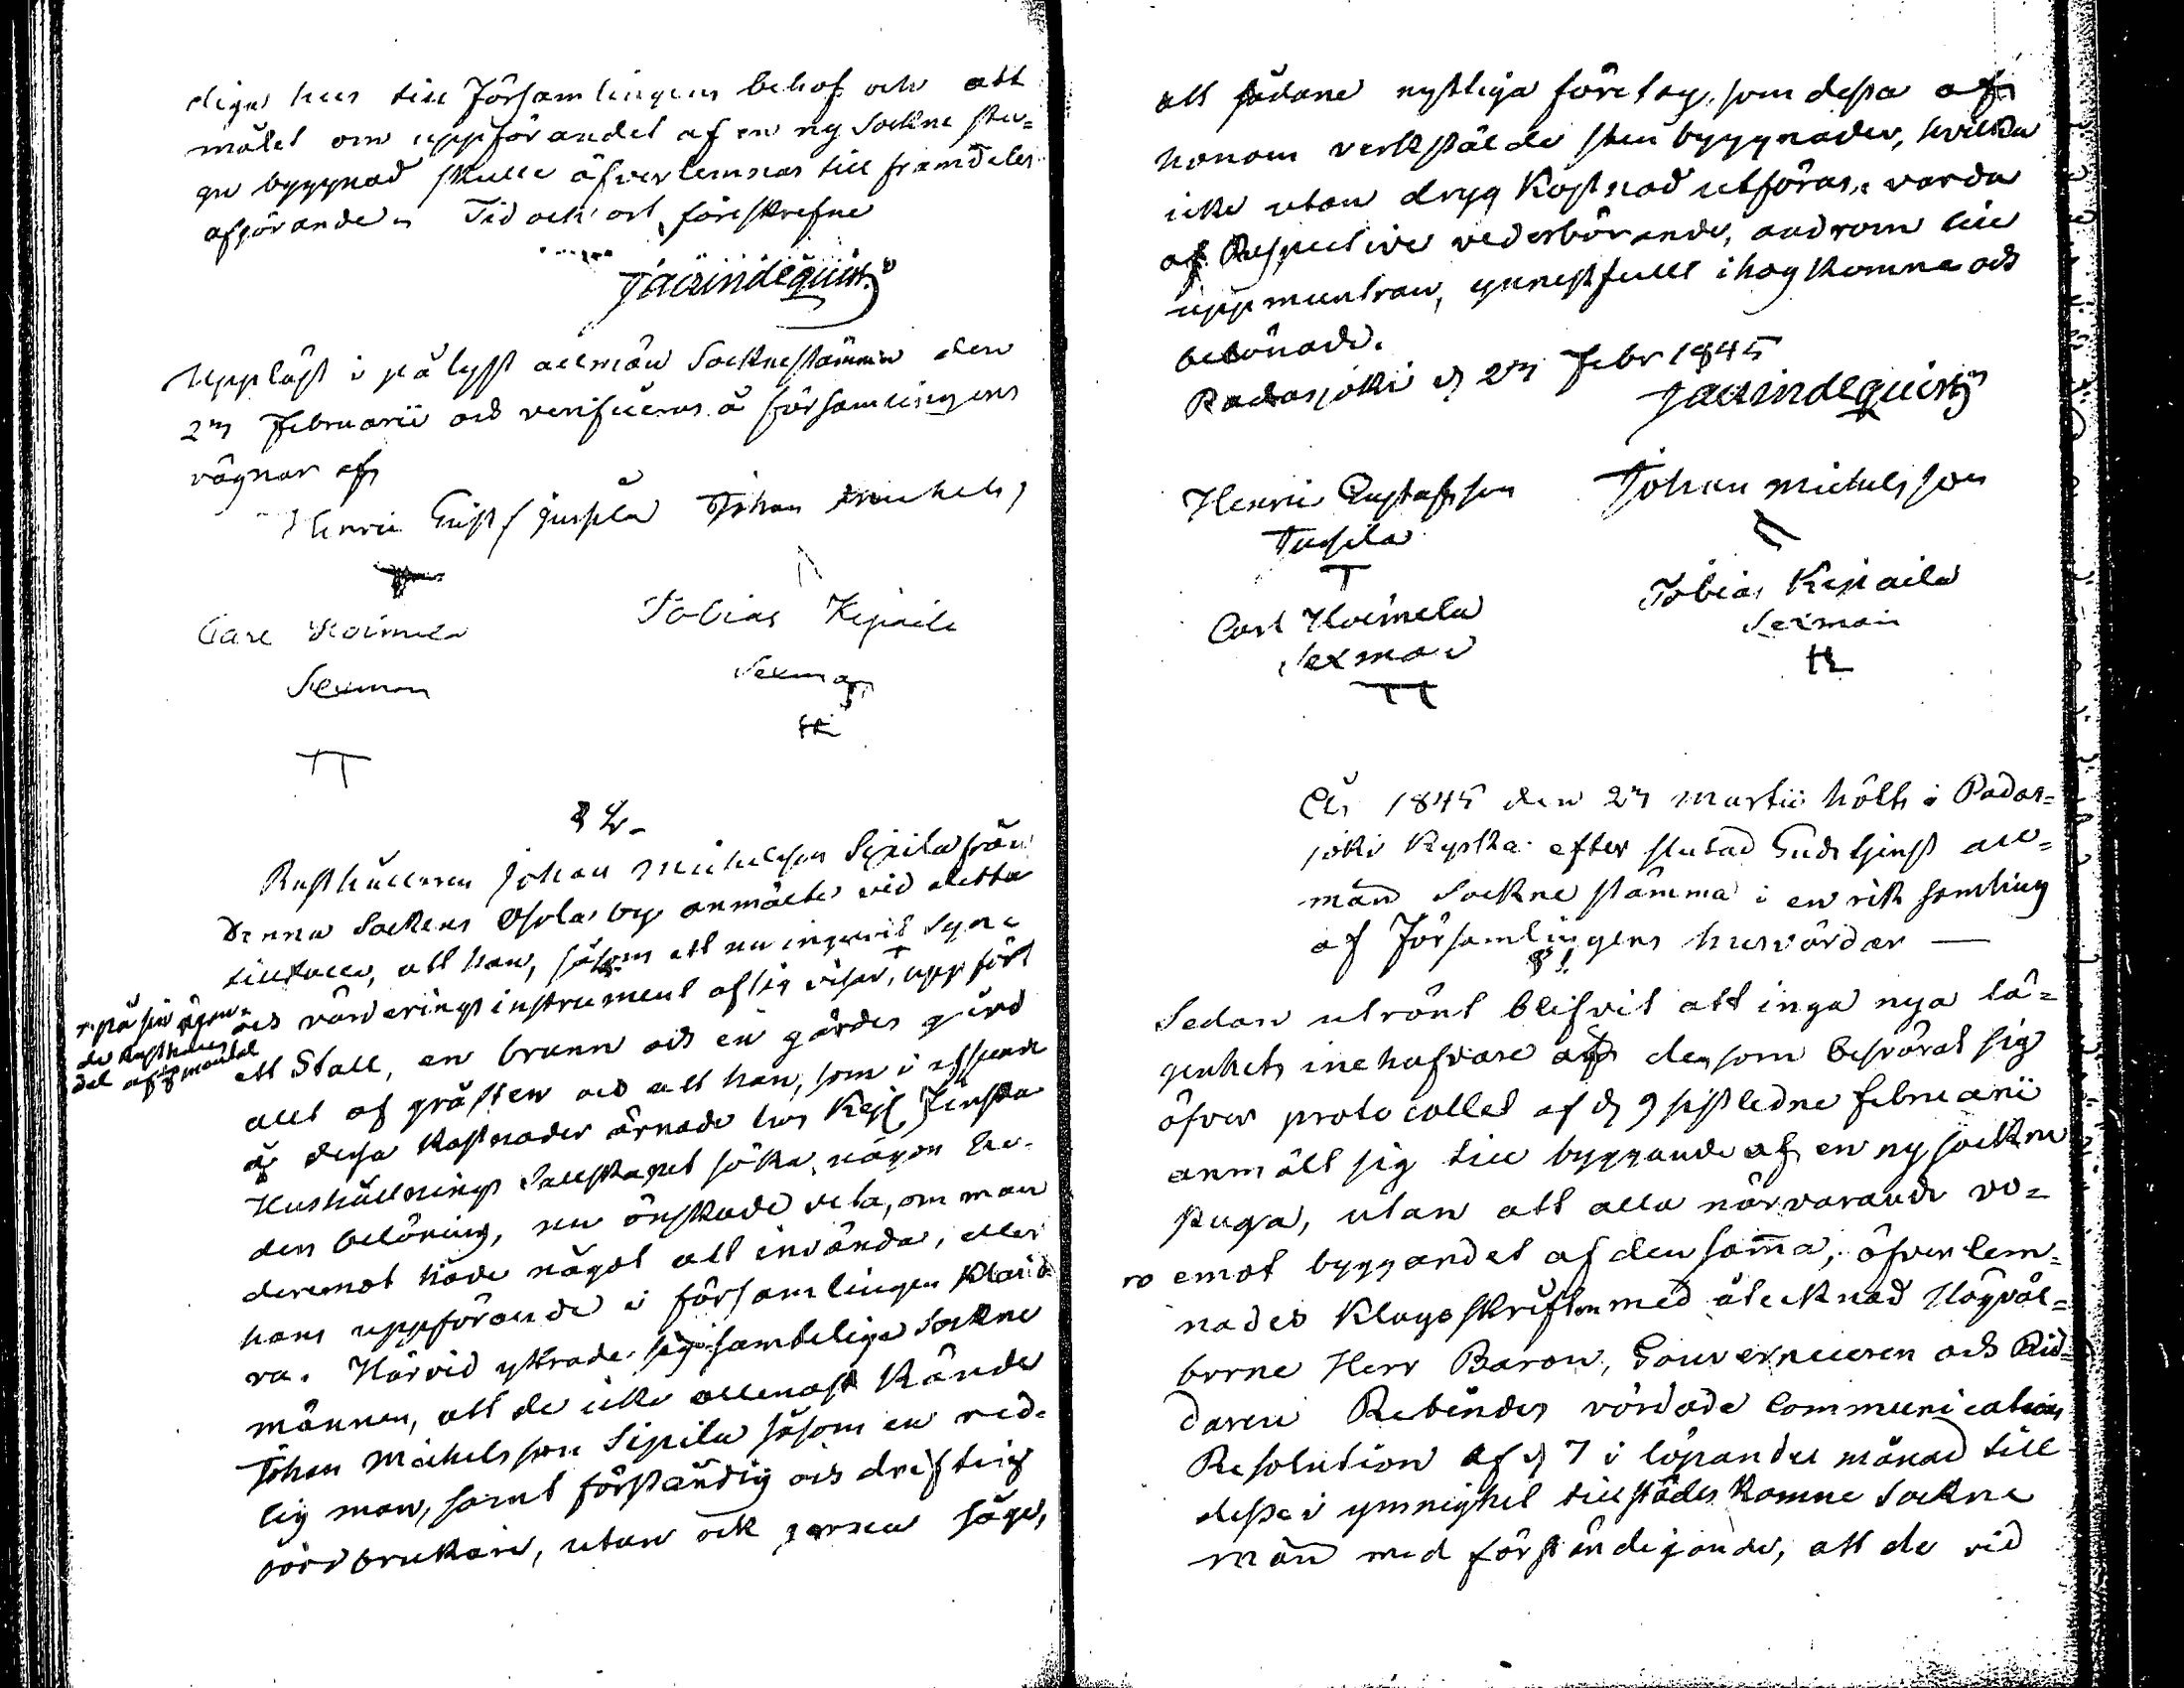 diga hus till Församlingens behof och att
målet om uppförandet af en ny Sockne stu=
gu byggnad skulle öfverlemnas till framdeles
afgörande. Tid och ort föreskrefne
Uppläst i pålyst allmän Socknestämma den
23 Februarii och verificeras å församlingens
vägnar af
Henric Gust s Jussila Johan Michels s
Carl Hoimela Tobias Kepaila
Sexman Sexman
§ 2.
Rusthållaren Johan Michelsson Sipila från
denna Sockens Osola by anmälte vid detta
tillfälle, att han, såsom ett nu ingifvit Syne
och värderings instrument af sig viser, uppfört
på sin ägan=
de Rusthålls
del af mantal
ett Stall, en brunn och en gårdes gärd
allt af gråsten och att han, som i afseende
å dessa kostnader ärnade hos Kejs Finska
Hushållnings Sällskapet söka någon
den belöning, nu önskade veta, om man
deremot hade något att invända, eller
hans uppförande i församlingen kland
ra. Härvid yttrade sig samtelige Sockne
männen, att de icke allenast kände
Johan Michelsson Sipila såsom en red=
lig man, samt förståndig och driftig
jordbrukare, utan ock gerna såge,
att sådane nyttiga företag, som dessa af
honom verkstälde sten byggnader, hvilka
icke utan dryg kostnad utföras, varda
af Respective vederbörande, androm till
uppmuntran, gunstfullt ihogkomne och
belönade.
Padasjoki d 23 Febr 1845
Henric Gustafsson Johan Michelsson
Jussila
Carl Hoimela Tobias Kepaila
Sexman Sexman
År 1845 den 23 Martii hölts i Padas=
joki Kyrka efter slutad Gudstjenst all=
män Sockne stämma i en rik samling
af Församlingens husvärdar —
§ 1.
Sedan utrönt blifvit att inga nya lä=
genhets innehafvare af dem som besvärat sig
öfver protocollet af d 9 sistledne februarii
anmält sig till byggande af en ny sockne
stuga, utan att alla närvarande vo=
ro emot byggandet af densamma, öfverlem=
nades Klagoskriften med åtecknad Högväl=
borne Herr Baron, Gouverneuren och Rid=
daren Rebinders vördade Communications
Resolution af d 7 i löpande månad till
desse i ymnighet tillstädes komne Sockne
män med förständigande, att de vid